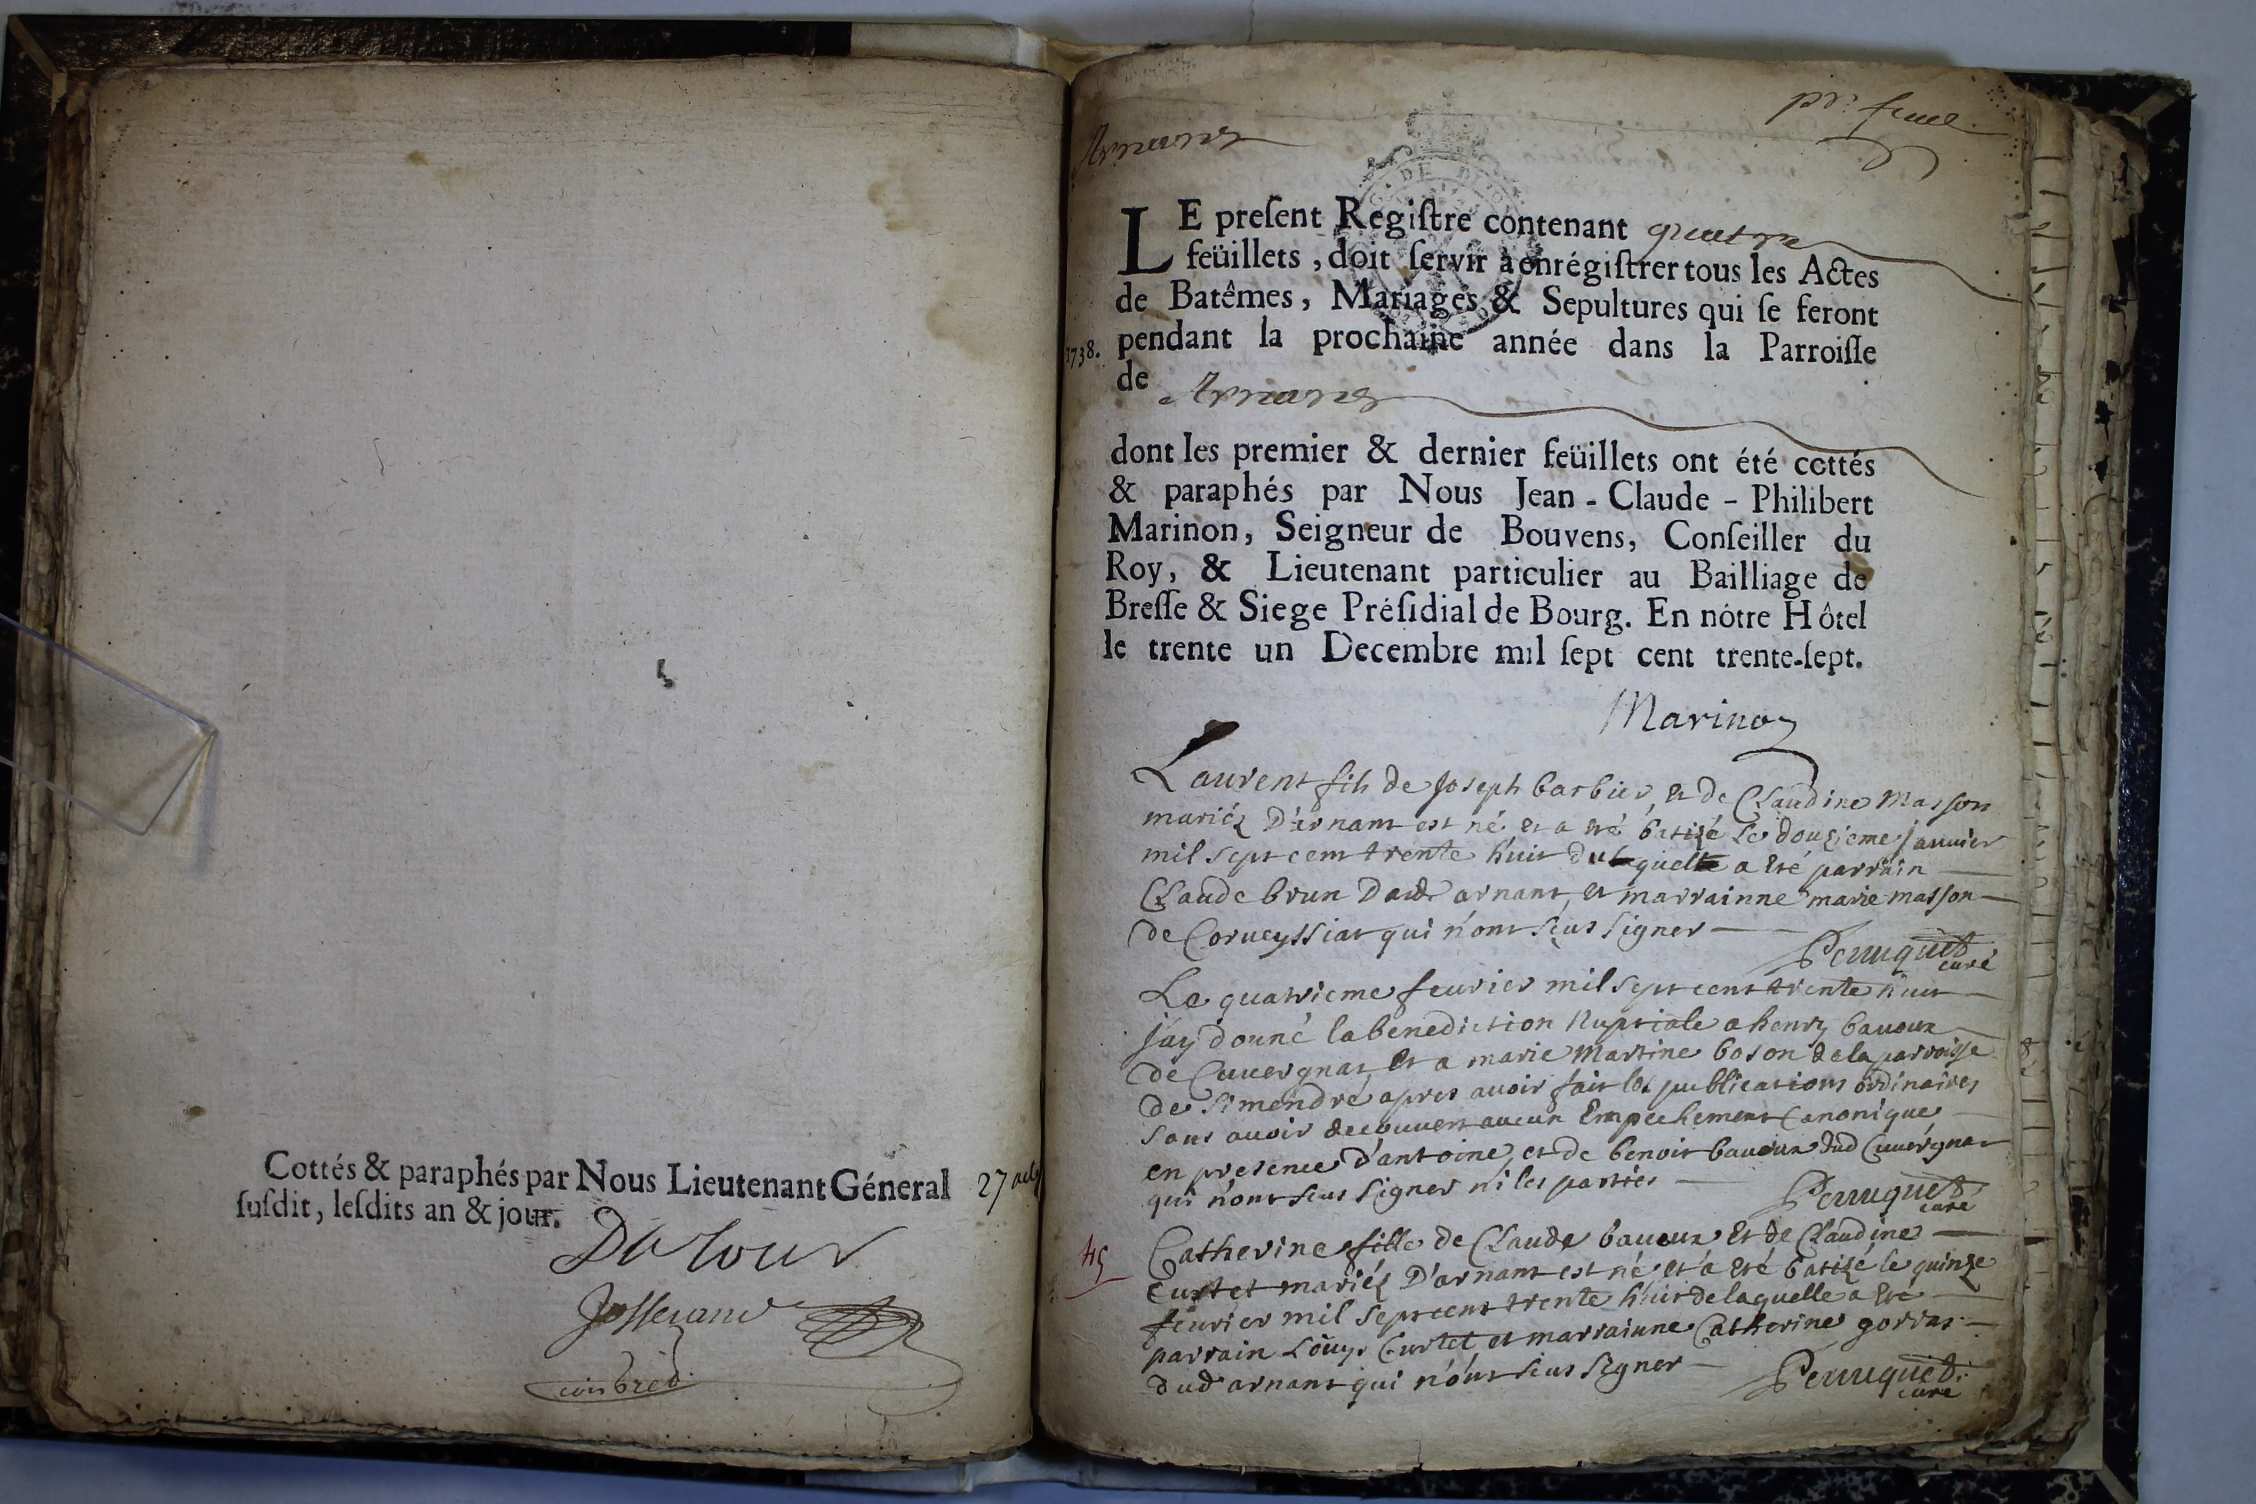 Cottés & paraphés par Nous Lieutenant Géneral
susdit, lesdits an & jour.
27 act
Josserand
Arnans
pr. feuel
LE present Registre contenant quatre
feüillets, doit servir à enrégistrer tous les Actes
de Batêmes, Mariages & Sepultures qui se feront
1738.
pendant la prochaine année dans la Parroisse
de Arnans
dont les premier & dernier feüillets ont été cottés
& paraphés par Nous Jean-Claude-Philibert
Marinon, Seigneur de Bouvens, Conseiller du
Roy, & Lieutenant particulier au Bailliage de
Bresse & Siege Présidial de Bourg. En nôtre Hôtel
le trente un Decembre mil sept cent trente-sept.
Marinon
Laurent fils de Joseph barbier, et de Claudine Masson
mariéz D'arnant est né et a eté batizé le douzieme janvier
mil sept cent trente huit duquel a eté parrain
Claude brun dud arnant, et marrainne marie masson
de Corveyssiat qui n'ont sçus signer
Perruquet
curé
Le quatrieme feurier mil sept cent trente huit
j'ay donné la benediction Nuptiale a henry bavoux
de Cuvergnat et a marie Martine boson de la parroisse
de simendré apres avoir fait les publications ordinaires
sans avoir decouvert aucun Empechement Canonique
en presence d'antoine et de benoit bavoux dud Cuvergnat
qui n'ont sçus signer ni les parties
Perruquet
curé
45
Catherine fille de Claude bavoux et de Claudine
Curtet mariéz D'arnant est né et a eté batizé le quinze
feurier mil sept cent trente huit de laquelle a eté
parrain Louys Curtet et marrainne Catherine gorras
dud arnant qui n'ont sçus signer
Perruquet
curé